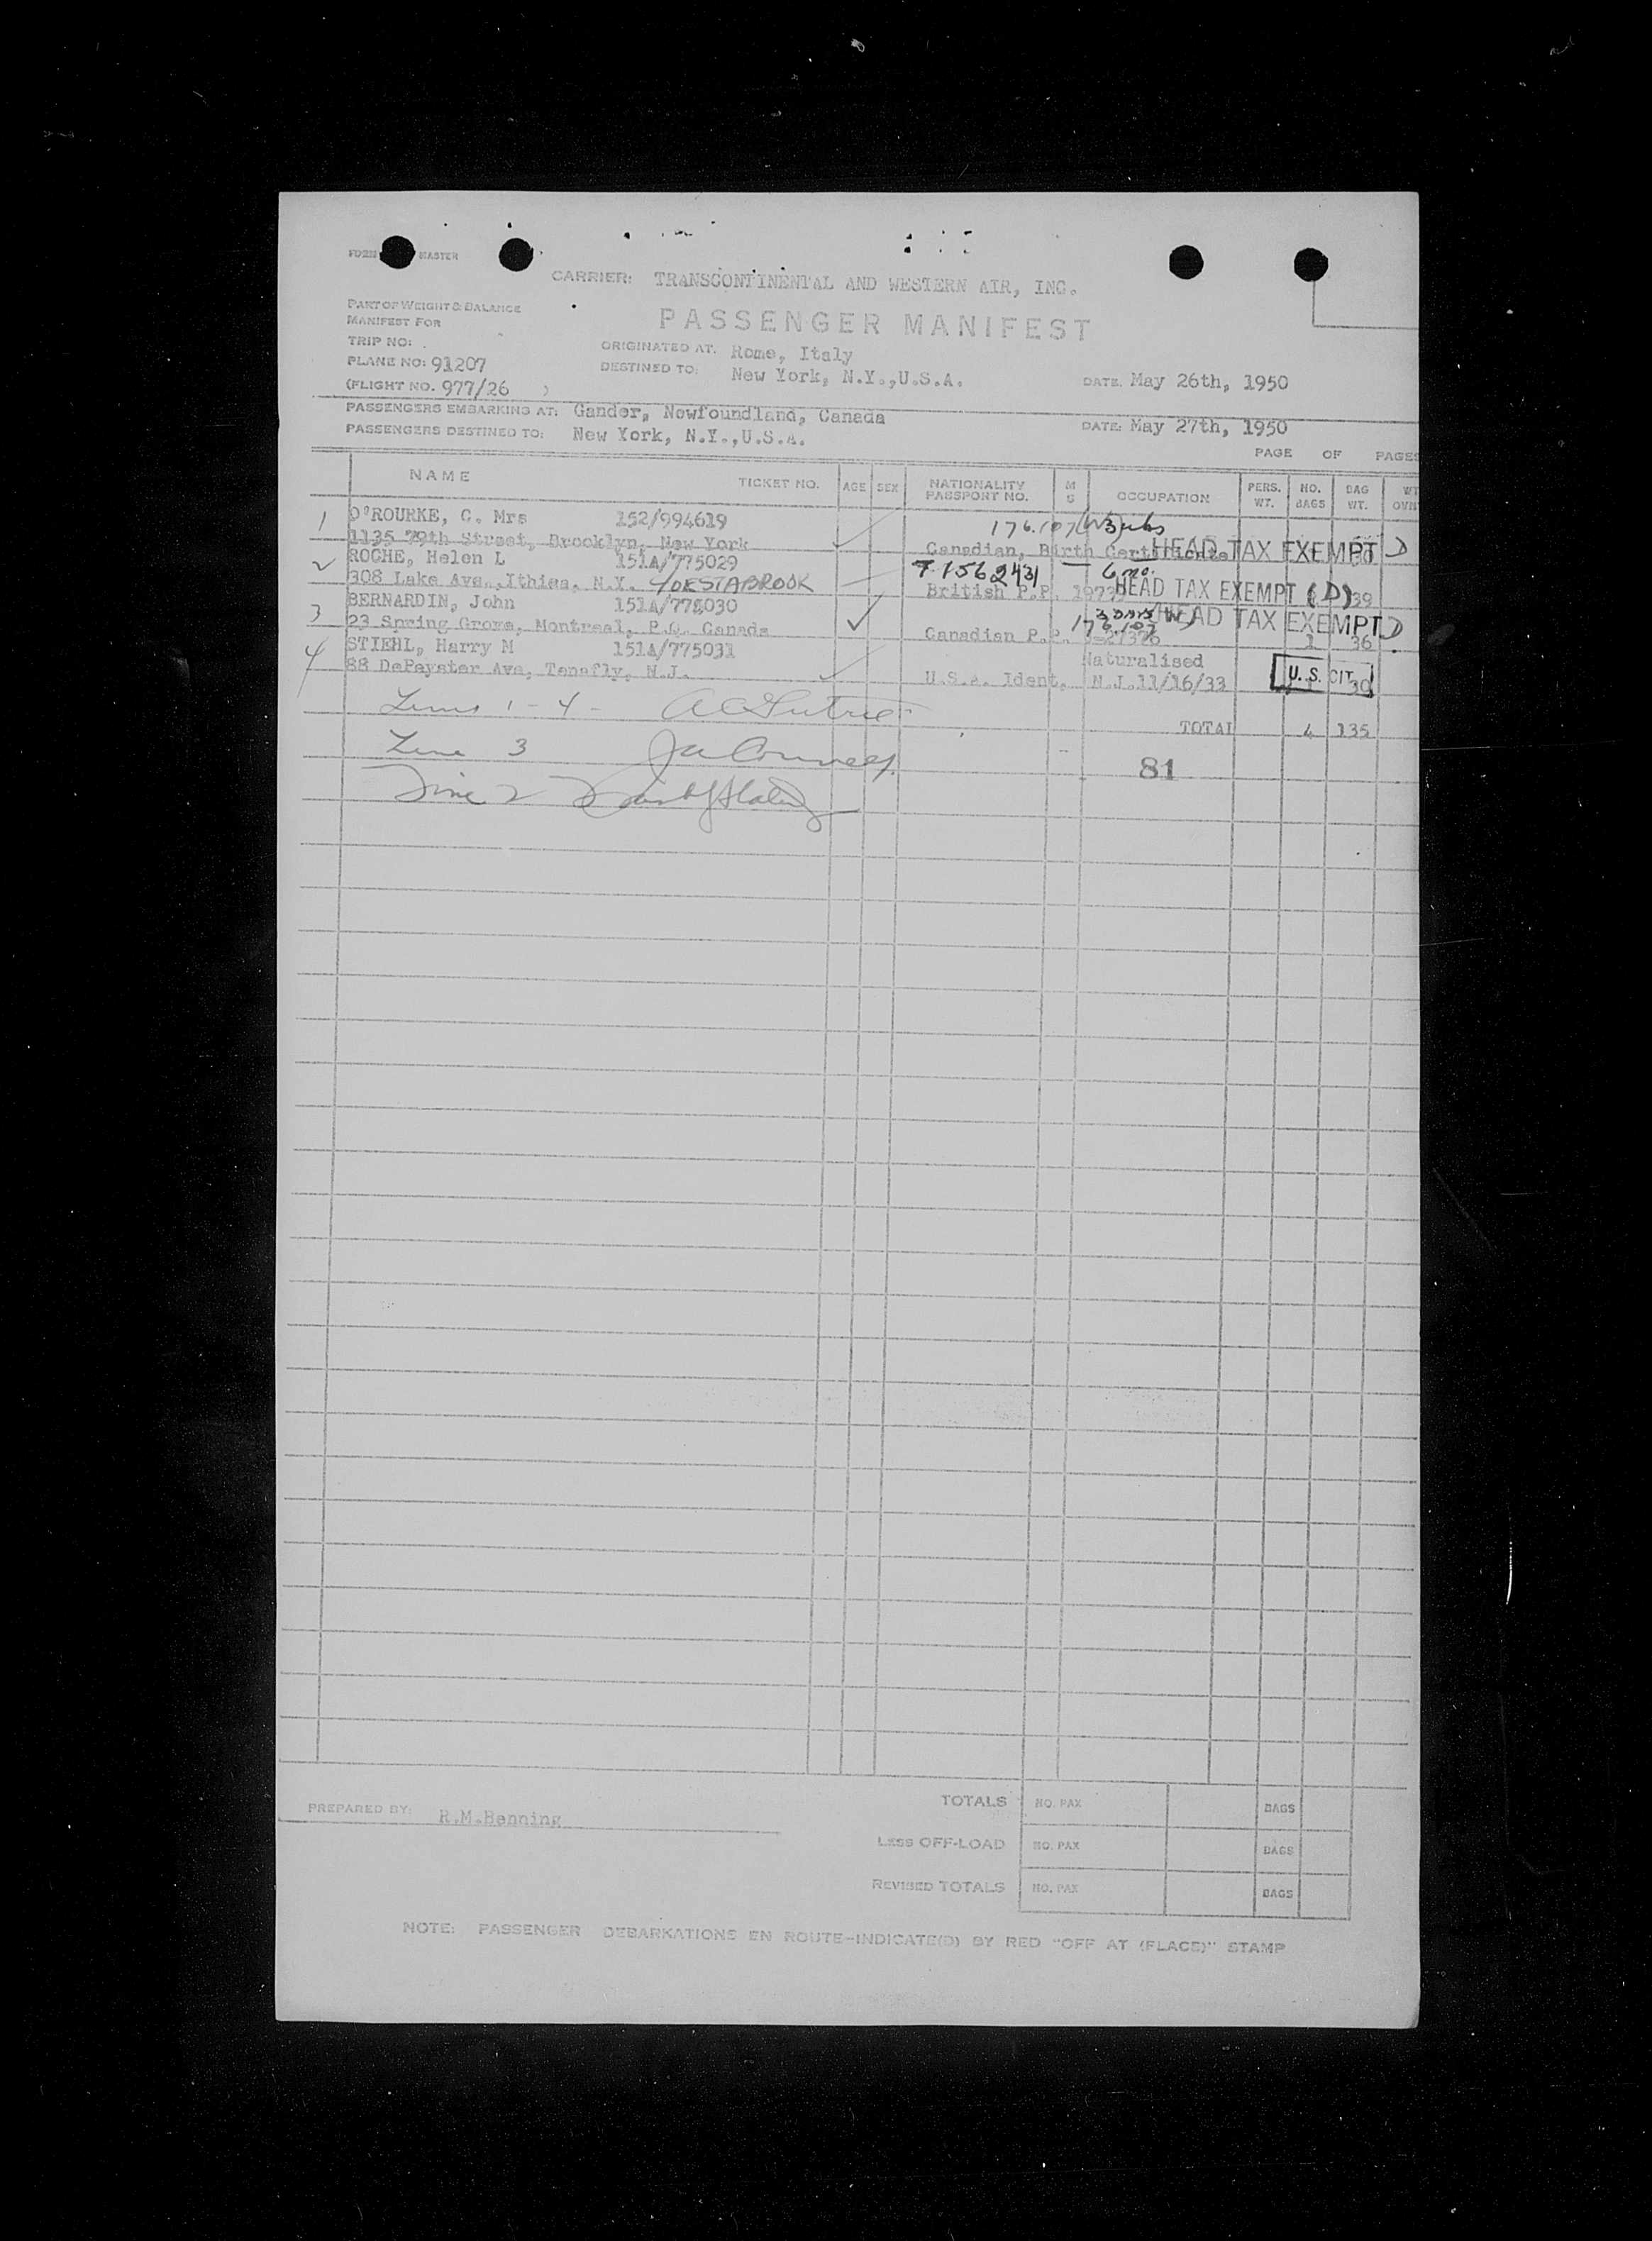 FORM MASTER
CARRIER: TRANSCONTINENTAL AND WESTERN AIR, INC.
PART OF WEIGHT & BALANCE
MANIFEST FOR
PASSENGER MANIFEST
TRIP NO:
ORIGINATED AT. Rome, Italy
PLANE NO: 91207
DESTINED TO: New York, N.Y.,U.S.A.
DATE. May 26th, 1950
(FLIGHT NO. 977/26 )
PASSENGERS EMBARKING AT: Gander, Newfoundland, Canada
DATE: May 27th, 1950
PASSENGERS DESTINED TO: New York, N.Y.,U.S.A.
PAGE OF PAGES
NAME TICKET NO. AGE SEX NATIONALITY PASSPORT NO. M S OCCUPATION PERS. WT. NO. BAGS BAG WT. WT OVR
1 O'ROURKE, C. Mrs 152/994619 176.107
1135 79th Street, Brooklyn, New York Canadian, Birth Certificate HEAD TAX EXEMPT D
2 ROCHE, Helen L 151A/775029 6 mo.
308 Lake Ave.,Ithiaa, N.Y. c/o ESTABROOK British P.P. HEAD TAX EXEMPT (D) 39
3 BERNARDIN, John 151A/775030 3 days HEAD TAX EXEMPT D
23 Spring Grove, Montreal, P.Q. Canada 176.107 Canadian P.P. 1 36
4 STIEHL, Harry M 151A/775031 Naturalised
88 DePeyster Ave, Tenafly, N.J. U.S.A. Ident. N.J.11/16/33 U. S. CIT. 30
Lines 1 - 4 -
TOTAL 4 135
Line 3
81
Line 2
PREPARED BY: R.M.Henning
TOTALS NO. PAX BAGS
LESS OFF-LOAD NO. PAX BAGS
REVISED TOTALS NO. PAX BAGS
NOTE: PASSENGER DEBARKATIONS EN ROUTE-INDICATE(D) BY RED "OFF AT (PLACE)" STAMP